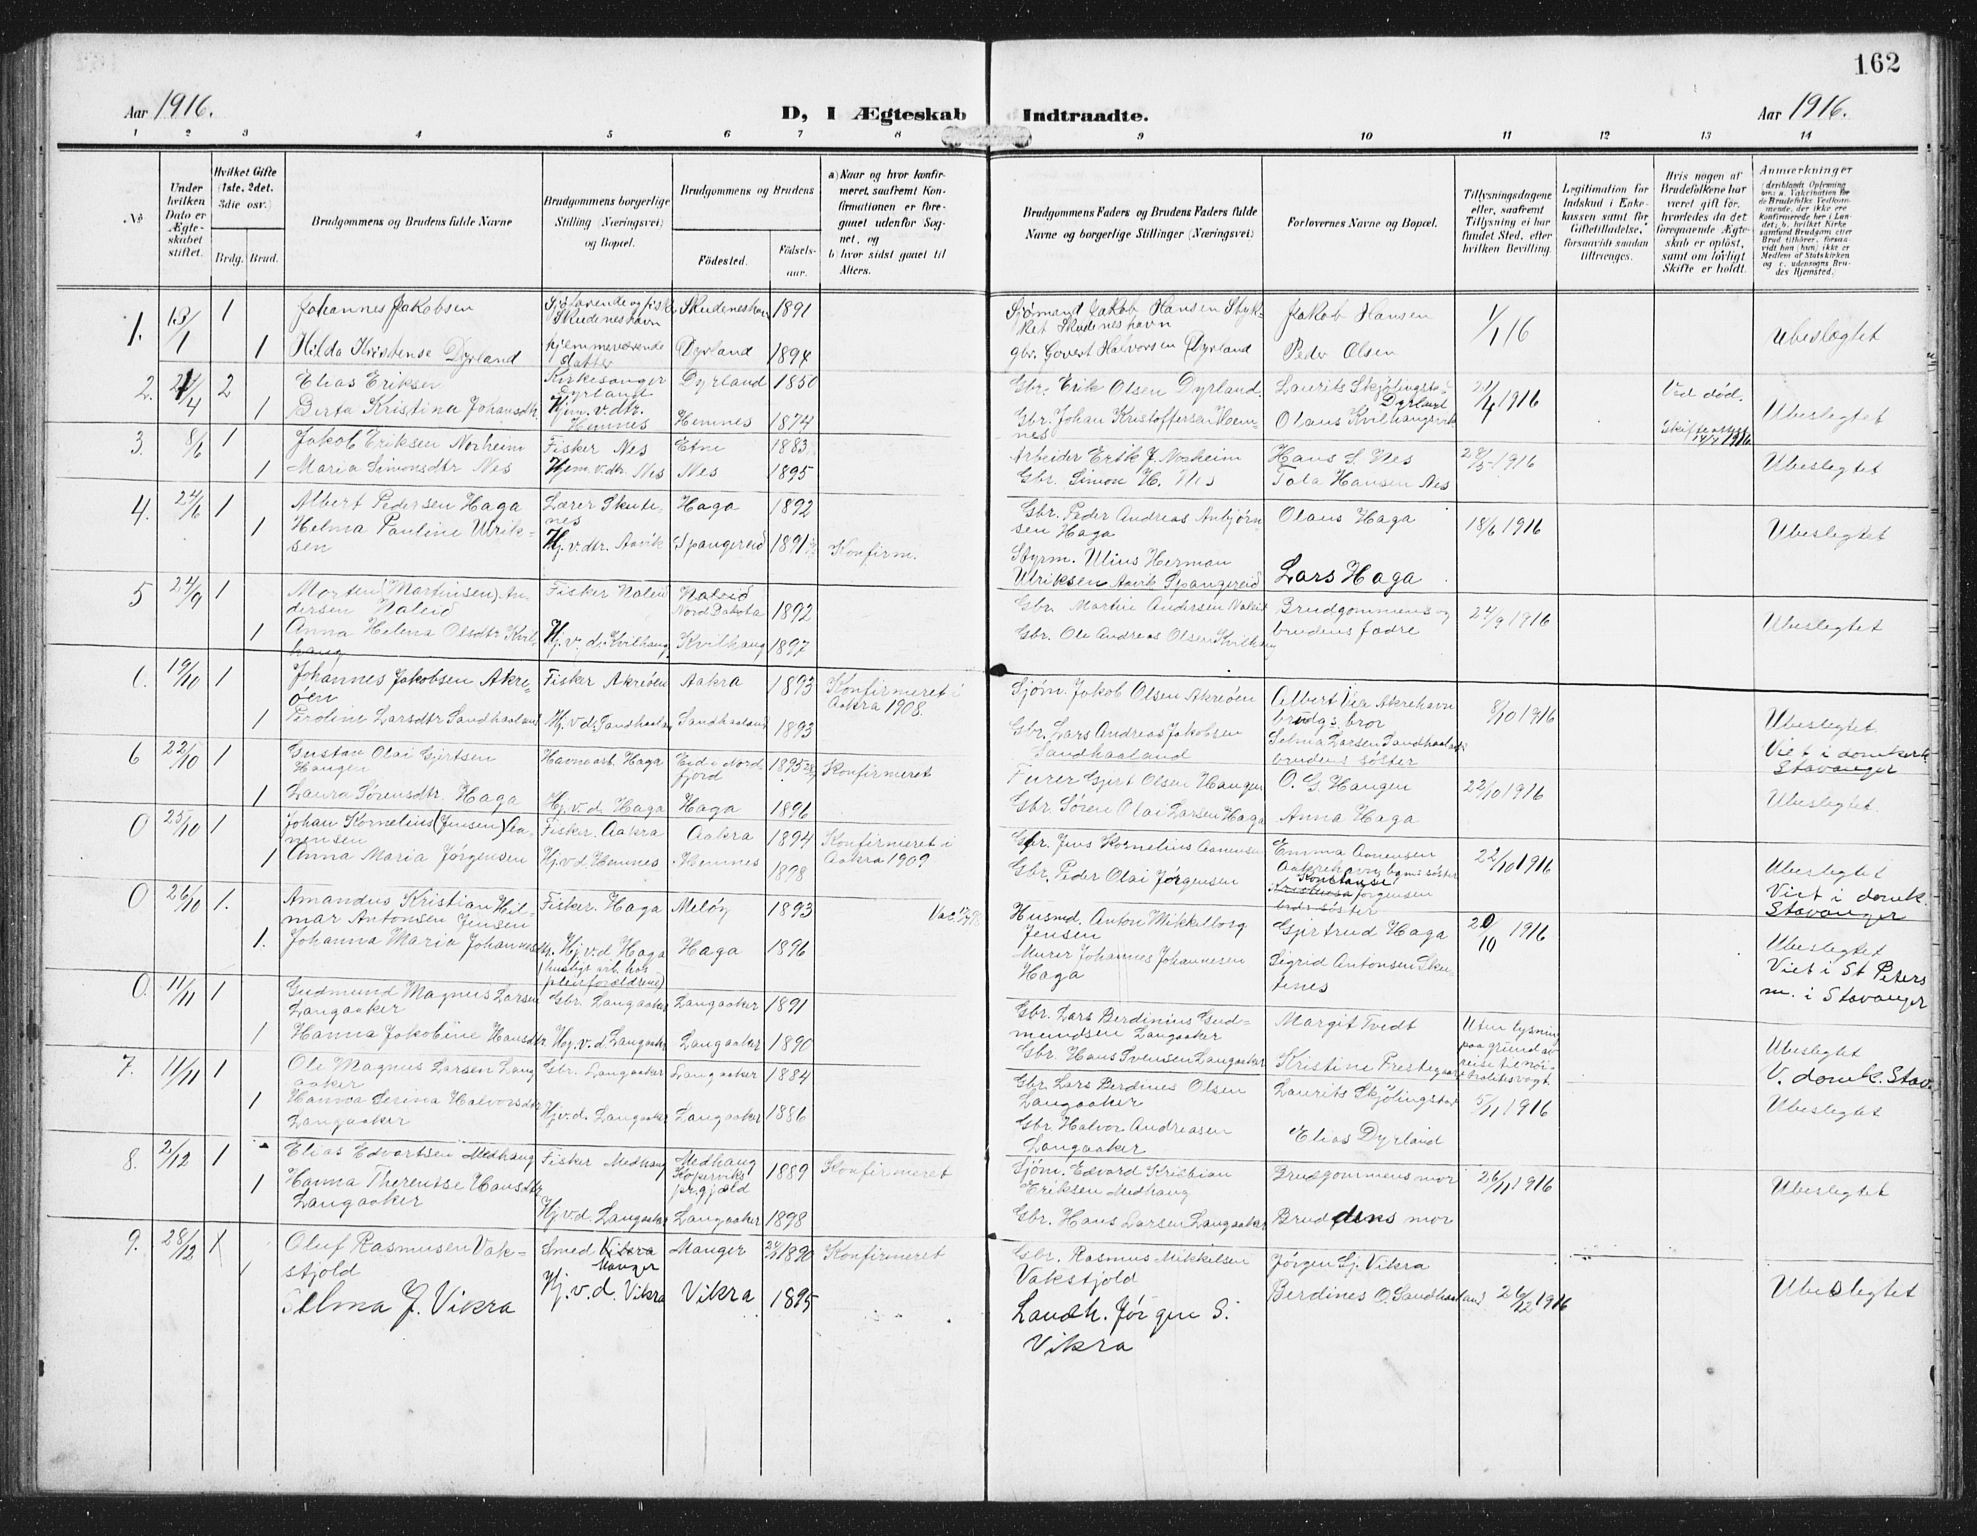 162
Aar 1916.
D, I Ægteskab Indtraadte.
Aar 1916.
1 2 3 4 5 6 7 8 9 10 11 12 13 14
No
Under hvilken Dato er Ægteskabet stiftet.
Hvilket Gifte (1ste, 2det, 3die osv.)
Brdg. Brud.
Brudgommens og Brudens fulde Navne
Brudgommens borgerlige Stilling (Næringsvei) og Bopæl.
Brudgommens og Brudens
Fødested.
Fødselsaar.
a) Naar og hvor konfirmeret, saafremt Konfirmationen er foregaaet udenfor Sognet, og
b) hvor sidst gaaet til Alters.
Brudgommens Faders og Brudens Faders fulde Navne og borgerlige Stillinger (Næringsvei)
Forlovernes Navne og Bopæl.
Tillysningsdagene eller, saafremt Tillysning ei har fundet Sted, efter hvilken Bevilling.
Legitimation for Indskud i Enkekassen samt for Giftetilladelse, forsaavidt saadan tiltrænges.
Hvis nogen af Brudefolkene har været gift før, hvorledes da det foregaaende Ægteskab er opløst, samt om lovligt Skifte er holdt.
Anmærkninger
(deriblandt Oplysning om: a. Vaccination for de Brudefolks Vedkommende, der ikke ere konfirmerede her i Landet; b. hvilket Kirkesamfund Brudgom eller Brud tilhører, forsaavidt han (hun) ikke er Medlem af Statskirken og c. udensogns Brudes Hjemsted.
1. 13/1 1 Johannes Jakobsen Sjøfarende og fisker Skudeneshavn Skudeneshavn 1891 Sjømand Jakob Hansen Stykket Skudeneshavn Jakob Hansen 1/1 16 Ubeslægtet
1 Hilda Kristense Dyrland hjemmeværende datter Dyrland 1894 gbr. Govert Halvorsen Dyrland Peder Olsen
2. 21/4 2 Elias Eriksen Kirkesanger Dyrland Dyrland 1850 Gbr. Erik Olsen Dyrland Laurits Skjølingstad Dyrland 21/4 1916 Ved død. Ubeslegtet
1 Berta Kristina Johansdtr. Hjm. v. dtr. Hemnes Hemnes 1874 Gbr. Johan Kristoffersen Hemnes Olaus Kvilhaugsvik Skifteattest 14/4 1916
3. 8/6 1 Jakob Eriksen Norheim Fisker Nes Etne 1883 Arbeider Erik J. Norheim Hans S. Nes 28/5 1916 Ubeslegtet
1 Maria Simonsdtr Nes Hjem. v. dtr. Nes Nes 1895 Gbr. Simon H. Nes Tala Hansen Nes
4. 24/6 1 Albert Pedersen Haga Lærer Skutenes Haga 1892 Gbr. Peder Andreas Anbjørnsen Haga Olaus Haga 18/6 1916 Ubeslegtet
1 Helma Pauline Ulriksen Hj. v. dtr. Aavik Spangereid 1891 Konfirm. Styrm. Ulius Herman Ulriksen Aavik Spangereid Lars Haga
5 24/9 1 Morten (Martinsen) Andersen Naleid Fisker Naleid Naleid Nord Dakota 1892 Gbr. Martin Andersen Naleid Brudgommens og brudens fadre 24/9 1916 Ubeslegtet
1 Anna Helena Olsdtr Kvilhaug Hj. v. d. Kvilhaug Kvilhaug 1897 Gbr. Ole Andreas Olsen Kvilhaug
0. 19/10 1 Johannes Jakobsen Akreøen Fisker Akreøen Aakra 1893 Konfirmeret i Aakra 1908. Sjøm. Jakob Olsen Akreøen Albert Via Akrehavn brudgs. bror 8/10 1916 Ubeslegtet Viet i domkirk Stavanger
1 Peroline Larsdtr Sandhaaland Hj. v. d. Sandhaaland Sandhaaland 1893 Gbr. Lars Andreas Jakobsen Sandhaaland Selma Larsen Sandhaaland brudens søster
6 22/10 1 Gustav Olai Gjertsen Haugen Havnearb. Haga Eid i Nordfjord 1895 Konfirmeret Furer Gjert Olsen Haugen O. G. Haugen 22/10 1916 Ubeslegtet.
1 Laura Sørensdtr. Haga Hj. v. d. Haga Haga 1896 Gbr. Søren Olai Larsen Haga Anna Haga
0 25/10 1 Johan Kornelius (Jensen) Aanensen Fisker. Aakra Aakra 1894 Konfirmeret i Aakra 1909 Gbr. Jens Kornelius Aanensen Emma Aanensen Aakrehavn bgms søster 22/10 1916 Ubeslegtet Viet i domk. Stavanger
1 Anna Maria Jørgensen Hj. v. d. Hemnes Hemnes 1898 Gbr. Peder Olai Jørgensen Konstanse Jørgensen brds søster
0 26/10 1. Amandus Kristian Hilmar Antonsen Jensen Fisker. Haga Meløy 1893 Husmd. Anton Mikkelborg Jensen Gjertrud Haga 20/10 1916 Ubeslegtet Viet i St Peters m. i Stavanger
1. Johanna Maria Johannesdtr. Hj. v. d. Haga (husligt arb. hos pleieforældrene) Haga 1896 Murer Johannes Johannesen Haga Sigrid Antonsen Skutenes
0. 11/11 1 Gudmund Magnus Larsen Langaaker Gbr. Langaaker Langaaker 1891 Gbr. Lars Berdinius Gudmundsen Langaaker Margit Tvedt Uten lysning paa grund av reise til nøitralitetsvagt. Ubeslegtet V. domk. Stav.
1 Hanna Jakobine Hansdtr Hj. v. d. Langaaker Langaaker 1890 Gbr. Hans Svensen Langaaker Kristine Prestegaard
7. 11/11 1 Ole Magnus Larsen Langaaker Gbr. Langaaker Langaaker 1884 Gbr. Lars Berdines Olsen Langaaker Laurits Skjølingstad 5/11 1916 Ubeslegtet
1 Hanna Serina Halvorsdtr Langaaker Hj v. d. Langaaker Langaaker 1886 Gbr. Halvor Andreasen Langaaker Elias Dyrland
8. 2/12 1 Elias Edvartsen Medhaug Fisker Medhaug Medhaug Kopervik pr.gjæld 1889 Konfirmeret Sjøm. Edvard Kristian Eriksen Medhaug Brudgommens mor 26/11 1916 Ubeslegtet
1 Hanna Therentse Hansdtr Langaaker Hj v d. Langaaker Langaaker 1898 Gbr. Hans Larsen Langaaker Brudens mor
9. 28/12 1 Oluf Rasmusen Vakstjold Smed Vikra Manger Manger 1890 Konfirmeret Gbr. Rasmus Mikkelsen Vakstjold Jørgen Sj. Vikra 26/12 1916 Ubeslegtet
1 Selma J. Vikra Hj. v. d. Vikra Vikra 1895 Landh. Jørgen S. Vikra Berdines O. Sandhaaland